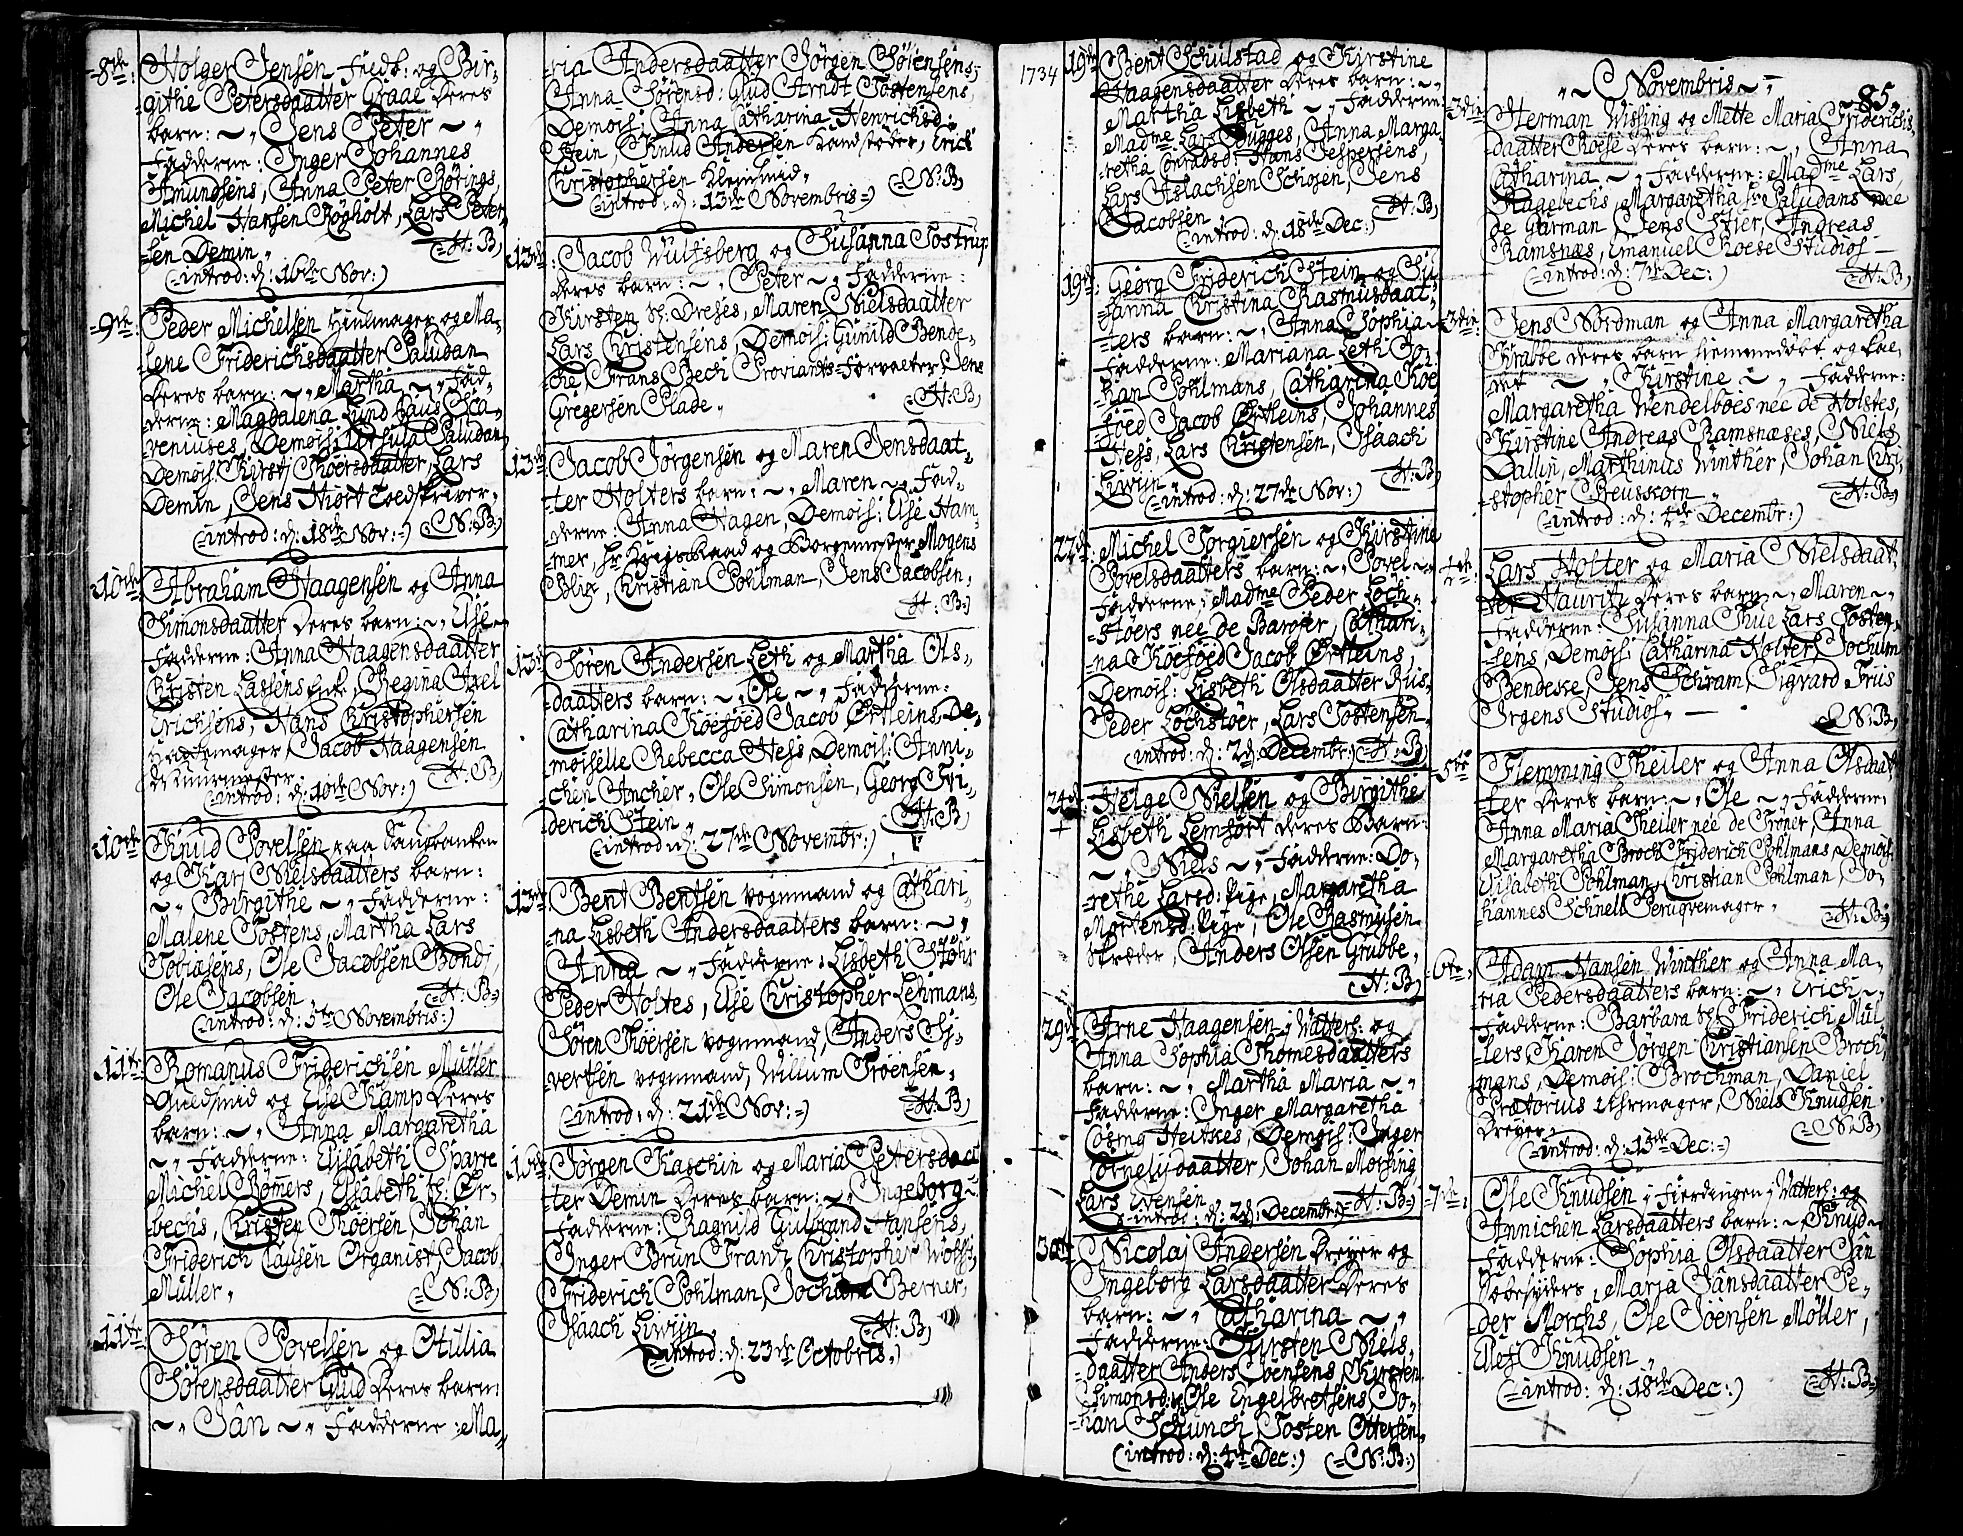 8de Holger Jensen Fredb: og Bir-
githe Petersdaatter Graae deres
barn: ~ „ Jens Peter ~ „
Fadderne: Inger Johannes
Amundsens, Anna Peter Rørings,
Michel Hansen Røgholt, Lars Peter-
sen Demin„ =H:B)
(=introd: d: 16de Nov:)
9de Peder Michelsen Hiulmager og Ma-
lene Friderichsdaatter Paludan
deres barn: ~ „ Martha ~ „ Fad-
derne: Magdalena Lund Laus Sca-
veniuses, Demois: Ursula Paludan,
Demois: Kirst: Thoersdaatter, Lars
Demin, Jens Hiort Toedskriver,
(=introd: d: 18de Nov:=) (=N:B)
10de Abraham Haagensen og Anna
Simonsdaatter deres barn: ~ „ Else ~
Fadderne: Anna Haagensdaatter
Christen Lassens Enke, Regina Axel
Erichsens, Hans Christophersen
Hattemager, Jacob Haagensen
Muurmester =H:B)
(=introd: d: 10de Nov:)
10de Knud Povelsen paa Saugbanken
og Kari Nielsdaatters barn:
~ „ Birgithe ~ „ Fadderne:
Malene Tostens, Martha Lars
Tobiæsens, Ole Jacobsen Bonde,
Ole Jacobsen, =H:B)
(=introd: d: 5te Novembris:)
11te Romanus Friderichsen Müller
Guldsmid og Else Kamp deres
barn: ~ „ Anna Margaretha
~ „ Fadderne: Elisabeth Sparre
Michel Rømers, Elsabeth Sl: Er-
bechs, Christen Thoersen Johan
Friderich Clausen Organist, Jacob
Müller, =N:B)
11te Søren Povelsen og Otillia
Sørensdaatter Glud deres barn:
~ „ Jân ~ „ Fadderne: Ma-
ria Andersdaatter Jørgen Sørensens,
Anna Sørensd: Glud Arndt Tostensens,
Demois: Anna Catharina Henrichsd:
Stein, Knud Andersen Handskoder, Erich
Christophersen Kleinsmid, =N:B)
(=introd: d: 13de Novembris=)
13de Jacob Wulfsberg og Susanna Tostrup
deres barn: ~ „ Peter ~ „ Fadderne:
Kirsten Sl: Dreses, Maren Nielsdaatter
Lars Christensens, Demois: Gunild Bende-
che, Frans Bech Proviants-Forvalter, Jens
Gregersen Plade„ =H:B)
13de Jacob Jørgensen og Maren Jensdaat-
ter Holters barn: ~ „ Maren ~ „ Fad-
derne: Anna Hagen, Demois: Else Ham-
mer, Hr. Krigs Raad og Borgemester Mogens
Blix, Christian Pohlman, Jens Jacobsen,
=H:B)
13de Søren Andersen Leth og Martha Ols-
daatters barn: ~ „ Ole ~ „ Fadderne:
Catharina Koefoed Jacob Ørtleins, De-
moiselle Rebecca Hess, Demois: Anni-
chen Ancher, Ole Simonsen, Georg Fri-
derich Stein„ =H:B)
(=introd: d: 27de Novembr:)
13de Bent Bentsen Vognmand og Cathari-
na Lisbeth Andersdaatters barn: ~ „
Anna ~ „ Fadderne: Lisbeth Støhr
Peder Holtes, Else Christopher Lehmans,
Søren Thoersen Vognmand, Anders Sy-
vertsen Vognmand, Willum Troensen,
(introd: d: 21de Nov:=) =H:B)
16de Jørgen Kaschin og Maria Petersdaat-
ter Demin deres barn: ~ „ Ingeborg ~
Fadderne: Ragnild Gulbrand Hansens,
Inger Brun Frantz Christopher Wølffs,
Friderich Pohlman, Jochum Berner,
Isaach Liwijn =H:B)
(=introd: d: 23de Octobris=)
1734 19de Bent Schulstad og Kirstine
Haagensdaatter deres barn: ~ „
Martha Lisbeth ~ „ Fadderne:
Madme Lars Bugges, Anna Marga-
retha Conradsd: Hans Jespersens,
Lars Aslachsen Schojen, Jens
Jacobsen =H:B)
(=introd: d: 18de Dec:)
19de Georg Friderich Stein og Su-
sanna Christina Rasmusdaat-
ters barn: ~ „ Anna Sophia ~
Fadderne: Mariana Leth Jo-
han Pohlmans, Catharina Koe-
foed Jacob Ørtleins, Johannes
Hess, Lars Christensen, Isaach
Liwijn =H:B)
(=introd: d: 27de Nov:)
22de Michel Torgiersen og Kirstine
Povelsdaatters barn: ~ „ Povel ~ „
Fadderne: Madme Peder Løch-
støers nee de Baroser, Cathari-
na Koefoed Jacob Ørtleins,
Demois: Lisbeth Olsdaatter Riis,
Peder Løchstøer, Lars Tostensen
(introd: d: 2d: Decembr:) (=H:B)
24de Helge Nielsen og Birgithe
Lisbeth Lemfort deres Barn:
~ „ Niels ~ „ Fadderne: Do-
rethe Larsd: Pige, Margaretha
Mortensd: Pige, Ole Rasmusen
Skræder, Anders Olsen Grubbe,
=H:B)
29de Arne Haagensen j Watters: og
Anna Sophia Thomesdaatters
barn: ~ „ Martha Maria ~ „
Fadderne: Inger Margaretha
Cosmo Heitkes, Demois: Inger
Cornelysdaatter, Johan Morsing,
Lars Evensen =H:B)
(=introd: d: 2d: Decembr:)
30te Nicolaj Andersen Dreyer og
Ingeborg Larsdaatter deres
barn: ~ „ Catharina ~ „
Fadderne: Kirsten Niels-
daatter Anders Joensens, Kirsten
Simonsd: Ole Engelbretsens, Jo-
han Schunch, Tosten Ottersen,
(introd: d: 4de Dec:) (=N:B)
„ ~ Novembris ~ „ 85,
3die Herman Wissing og Mette Maria Friderichs-
daatter Roese deres barn: ~ „ Anna
Catharina ~ „ Fadderne: Madme Lars
Hagebechs, Margaretha Sl: Paludans nee
de Garman, Jens Stier, Andreas
Ramsnæs, Emanuel Roese Studios: —
(=introd: d: 7de Dec:) =H:B)
3die Jens Nordman og Anna Margaretha
Krabbe deres barn hiemmedøbt og kal-
det ~ „ Kirstine ~ „ Fadderne:
Margaretha Wendelboes nee de Holstes,
Kirstine Andreas Ramsnæses, Niels
Dallin, Marthinus Winther, Johan Chri-
stopher Preuskorn„ =H:B)
(=introd: d: 4de Decembr:)
4de Lars Holter og Maria Nielsdaat-
ter Hauritz deres barn ~ „ Maren ~ „
Fadderne: Susanna Thue Lars Tosten-
sens, Demois: Catharina Holter, Jochum
Bendeske, Jens Schram, Sigvard Friis
Irgens Studios„ — =N:B)
5te Flemming Theiler og Anna Olsdaat-
ter deres barn: ~ „ Ole ~ „ Fadderne:
Anna Maria Theiler nee de Troner, Anna
Margaretha Broch Friderich Pohlmans, Demois:
Elisabeth Pohlman, Christian Pohlman, Jo-
hannes Schnell Peruqvemager, =H:B)
6te Adam Hansen Winther og Anna Ma-
ria Pedersdaatters barn: ~ „ Erich ~ „
Fadderne: Barbara Sl: Friderich Mül-
lers, Karen Jørgen Christiansen Broch-
mans, Demois: Brochman, Daniel
Prætorius Uhrmager, Niels Knudsen
Dreyer, =N:B)
(=introd: d: 13de Dec:=)
7de Ole Knudsen j Fierdingen j Watters: og
Annichen Larsdaatters barn: ~ Knud ~
Fadderne: Sophia Olsdaatter Jân
Sæbesyders, Maria Jânsdaatter Pe-
der Morchs, Ole Joensen Møller,
Ellef Knudsen„
(=introd: d: 18de Dec:) =H:B)